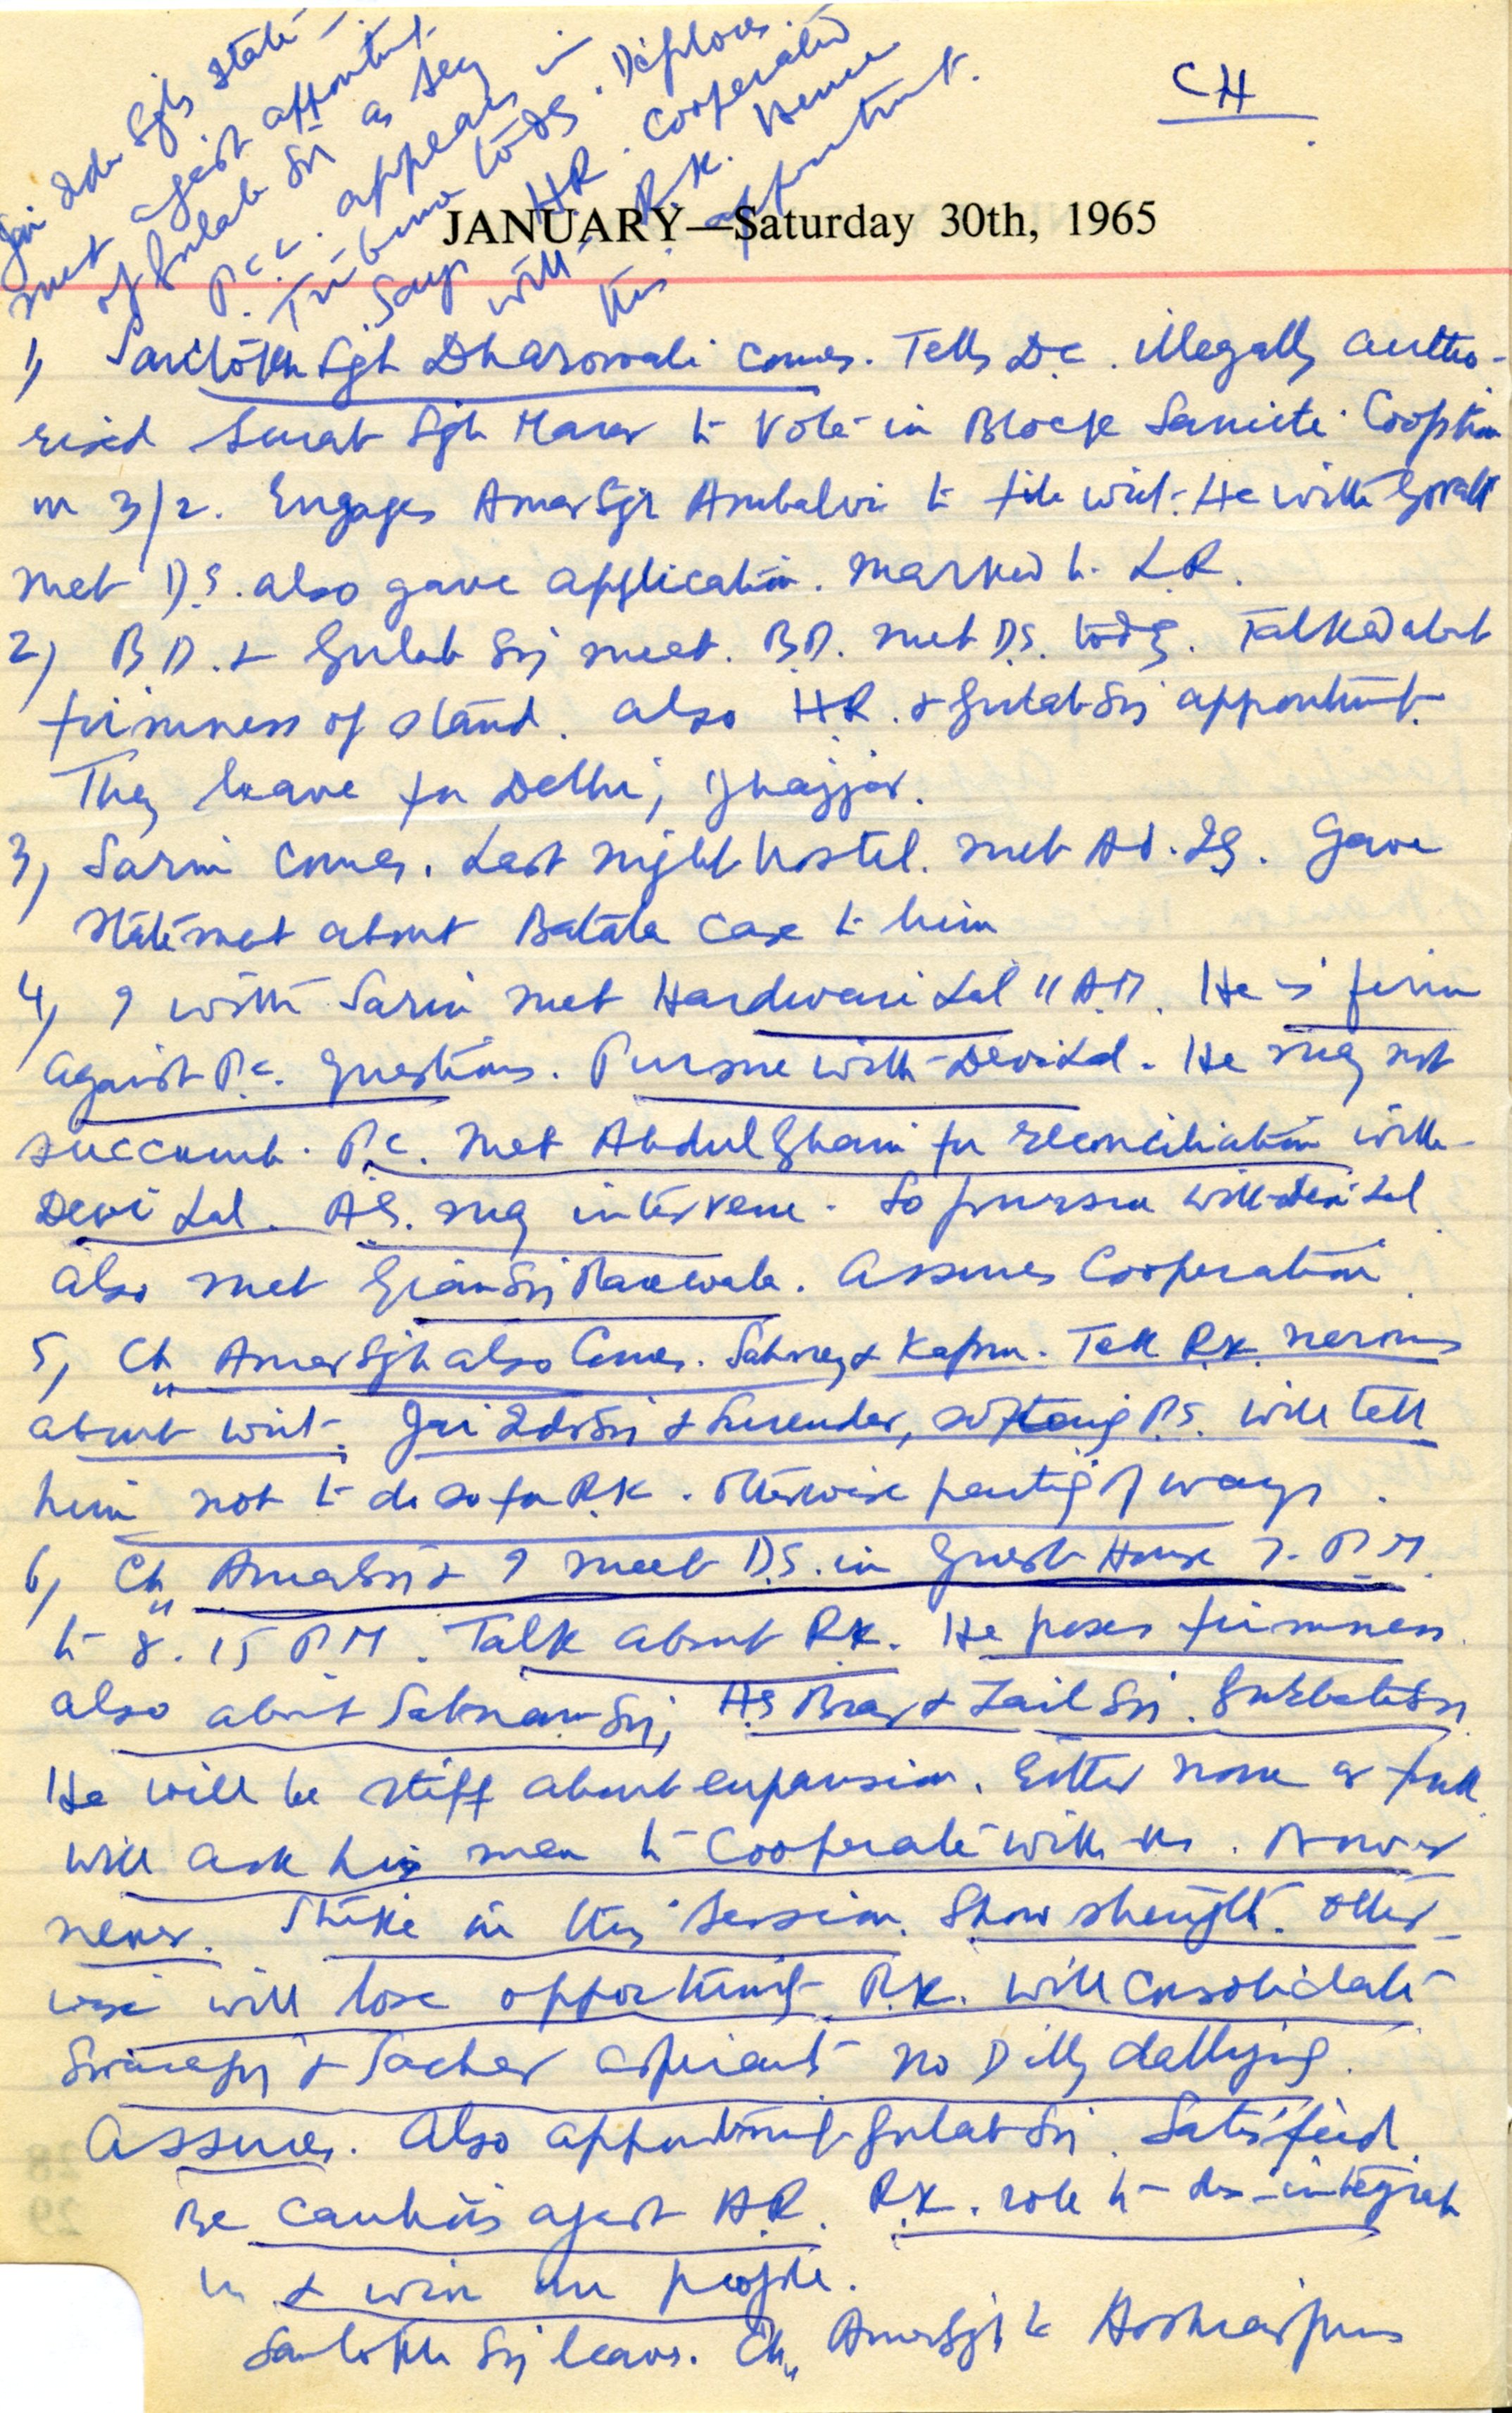 CH
Jai Inder Sgh state-
ment against appointmt
of Gulab Sij as Secy
P.C.C. appears in
Tribune today. Deplores.
Says HR. Cooperated
with R.K. Hence
this appointmt.
JANUARY—Saturday 30th, 1965
1) Santokh Sgh Dharowali comes. Tells D.C. illegally autho-
rised Surat Sgh Marar to Vote in Block Samiti Cooption
on 3/2. Engages Amar Sgh Ambalvi to file writ. He with
met D.S. also gave application. Marked to L.R.
2) B.D. & Gulab Sij meet. B.D. met D.S. today. Talked about
firmness of stand. Also HR. & Gulab Sij appointmt.
They leave for Delhi, Jhajjar.
3) Sarin comes. Last night hostel. Met Ad. IG. Gave
statemet about Batala case to him
4) I with Sarin met Hardwari Lal 11 AM. He is firm
against P.C. questions. Pursue with Devi Lal. He may not
succumb. P.C. met Abdul Ghani for reconciliation with
Devi Lal. AG. may intervene. So pursue with Devi Lal
also met Gian Sij Rarewala. Assures Cooperation.
5) Ch Amar Sgh also comes. Sahney & Kapur. Tell R.K. nervous
about writ. Jai Inder Sij & Surender, D.S. will tell
him not to do so for R.K. Otherwise parting of ways.
6) Ch Amar Sij & I meet D.S. in Guest House 7. P.M.
to 8.15 P.M. Talk about R.K. He poses firmness.
also about Satnam Sij, HS Brar & Zail Sij. Gurbanta Sij
He will be stiff about expansion. Either none or full
will ask his men to Cooperate with us. Now or
never. Strike in this Session. Show strength. Other-
wise will lose opportunity R.K. will consolidate
Swaran Sij & Sachar aspirants no Dilly dallying.
Assures. Also appointmt Gulab Sij. Satisfied.
Be cautious agast H.R. R.K. role to dis-integrate
us & win our people.
Santokh Sij leaves. Ch Amar Sgh to Hoshiarpur